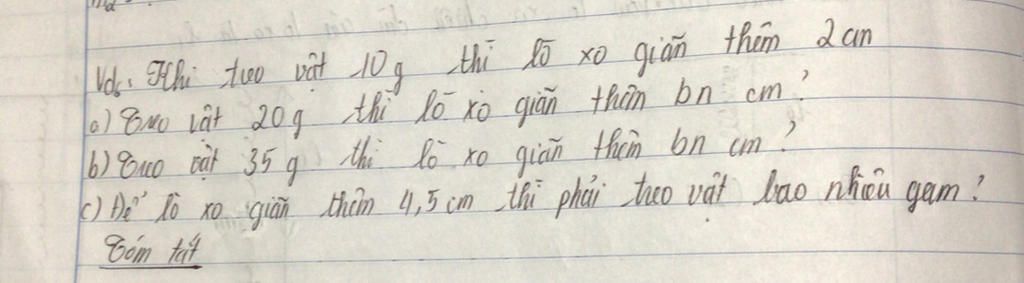 Vd: Khi treo vật 10g thì lò xo giãn thêm 2cm
a) Treo vật 20g thì lò xo giãn thêm bn cm?
b) Treo vật 35g thì lò xo giãn thêm bn cm?
c) Để lò xo giãn thêm 4,5cm thì phải treo vật bao nhiêu gam?
Tóm tắt